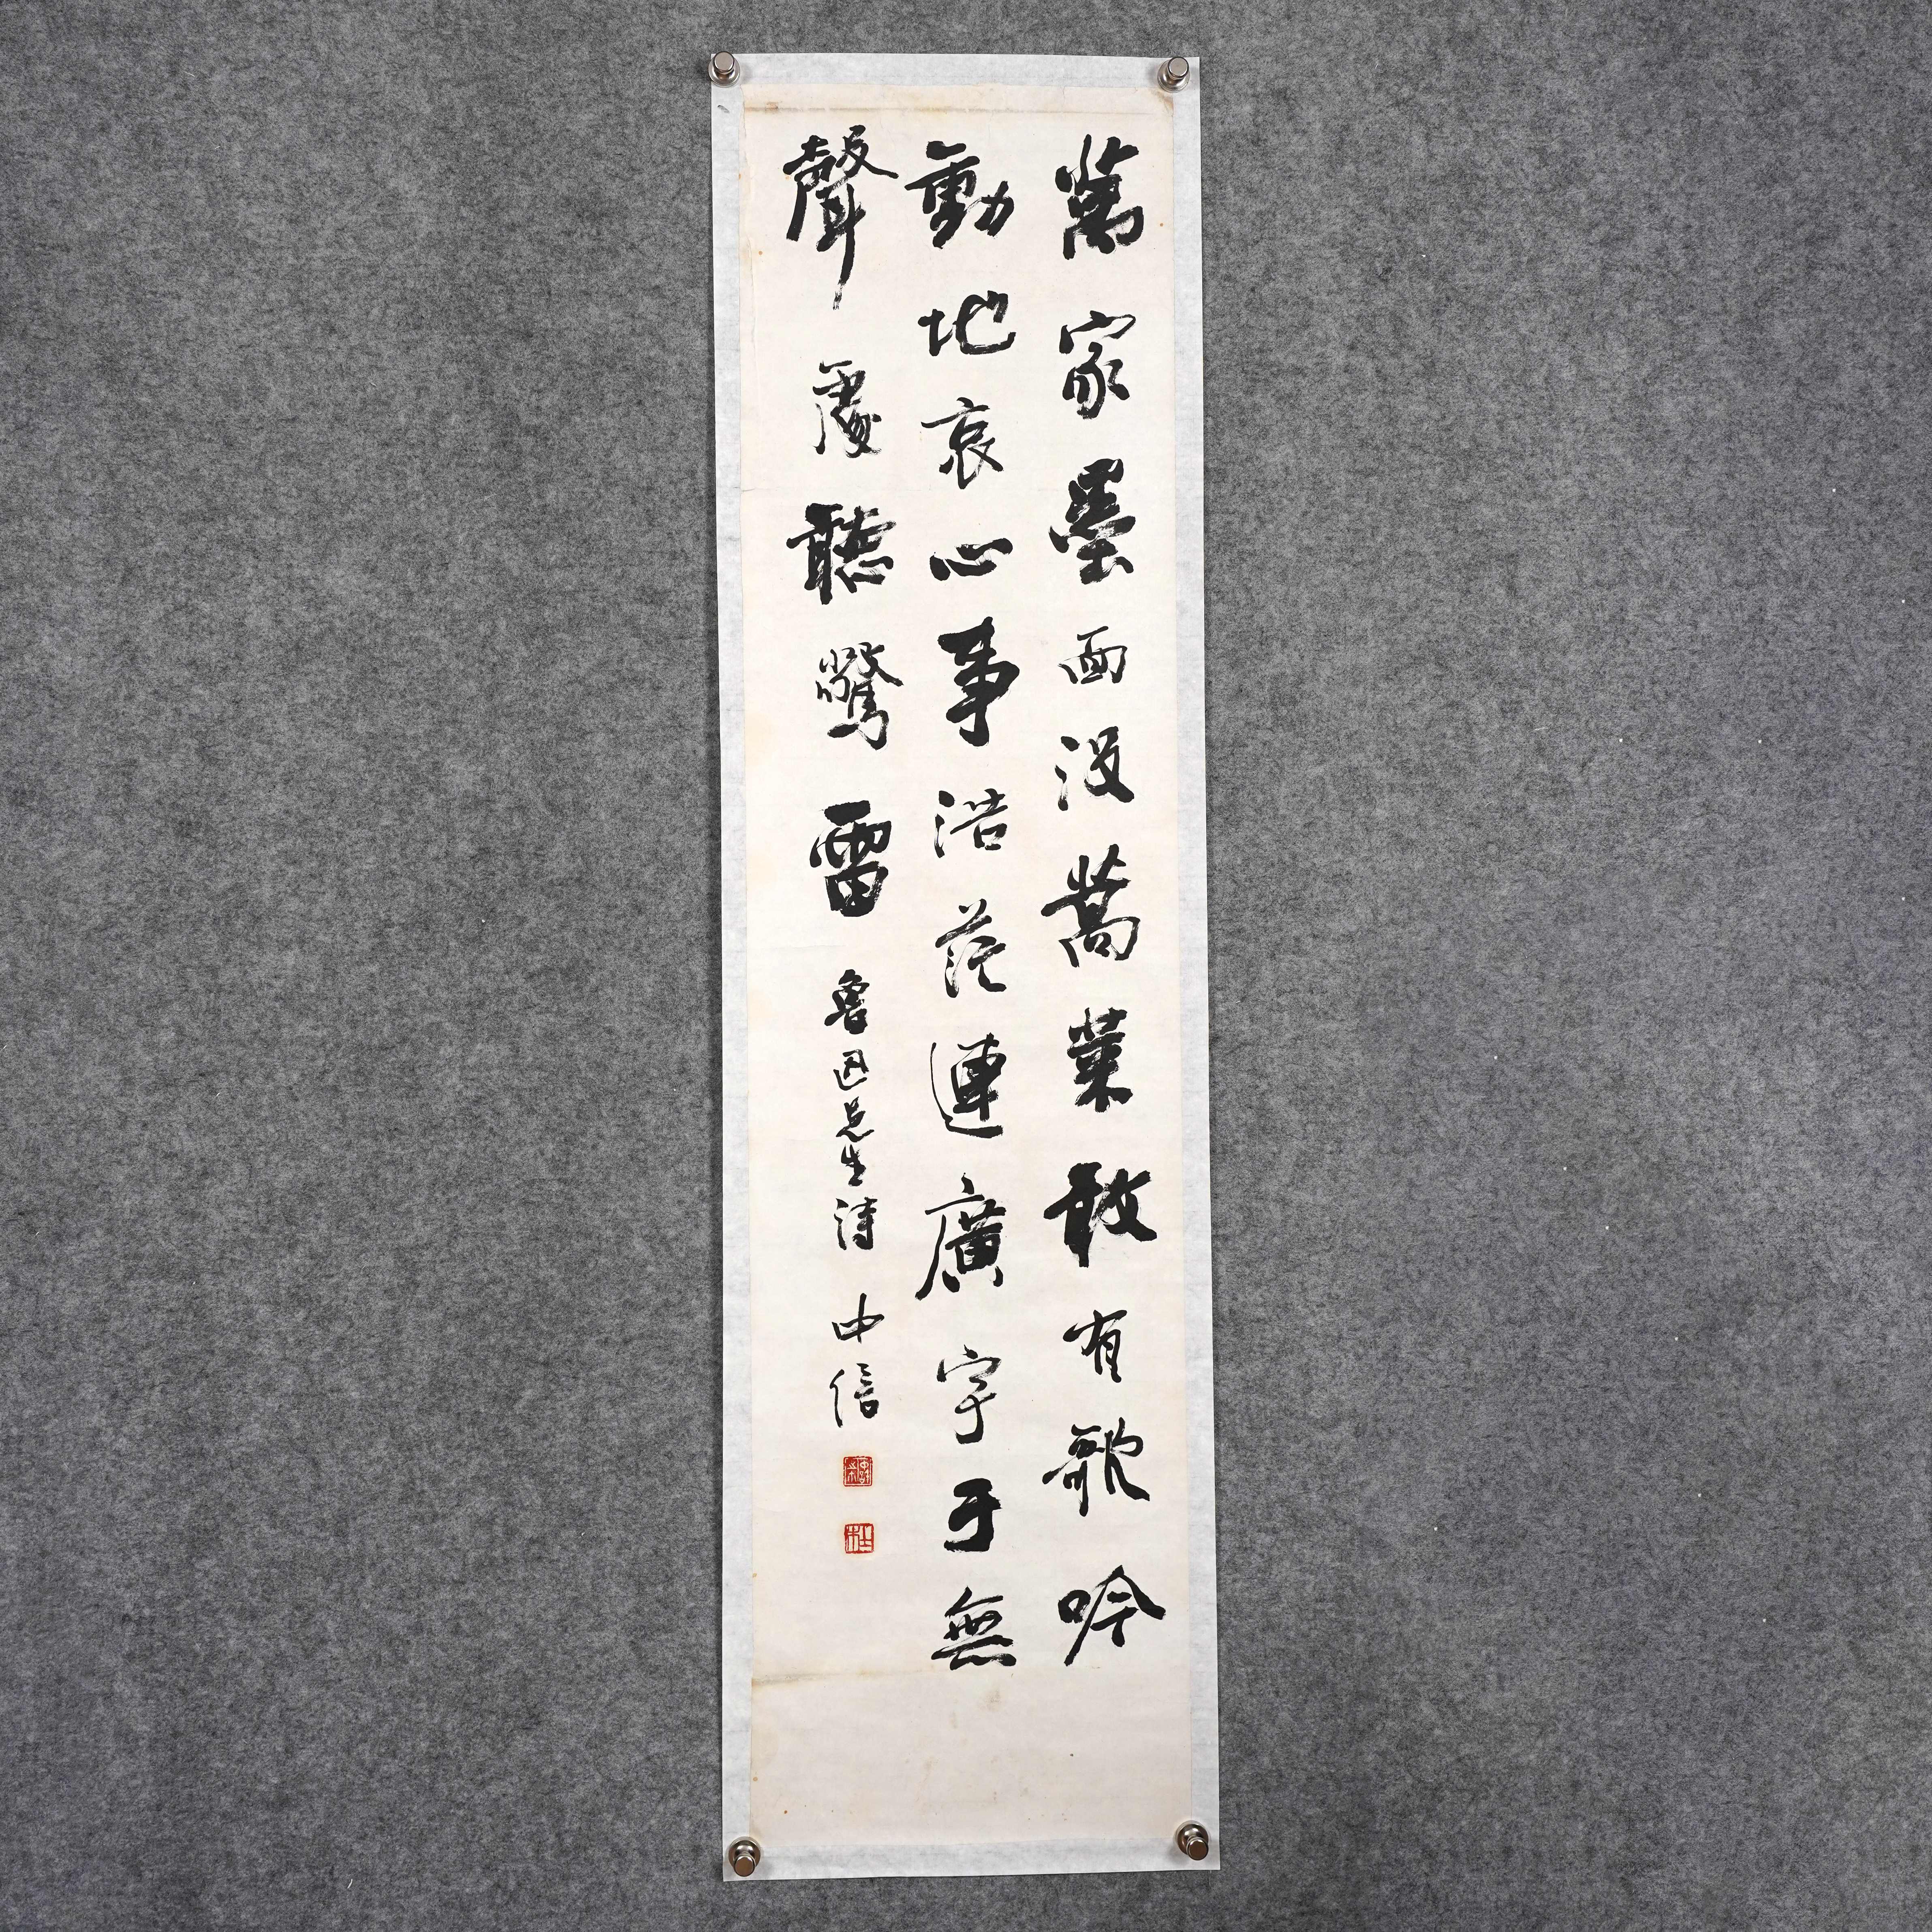 萬家墨面没蒿莱敢有歌吟
動地哀心事浩茫連廣宇于無
聲處聽驚雷 魯迅先生詩 中信